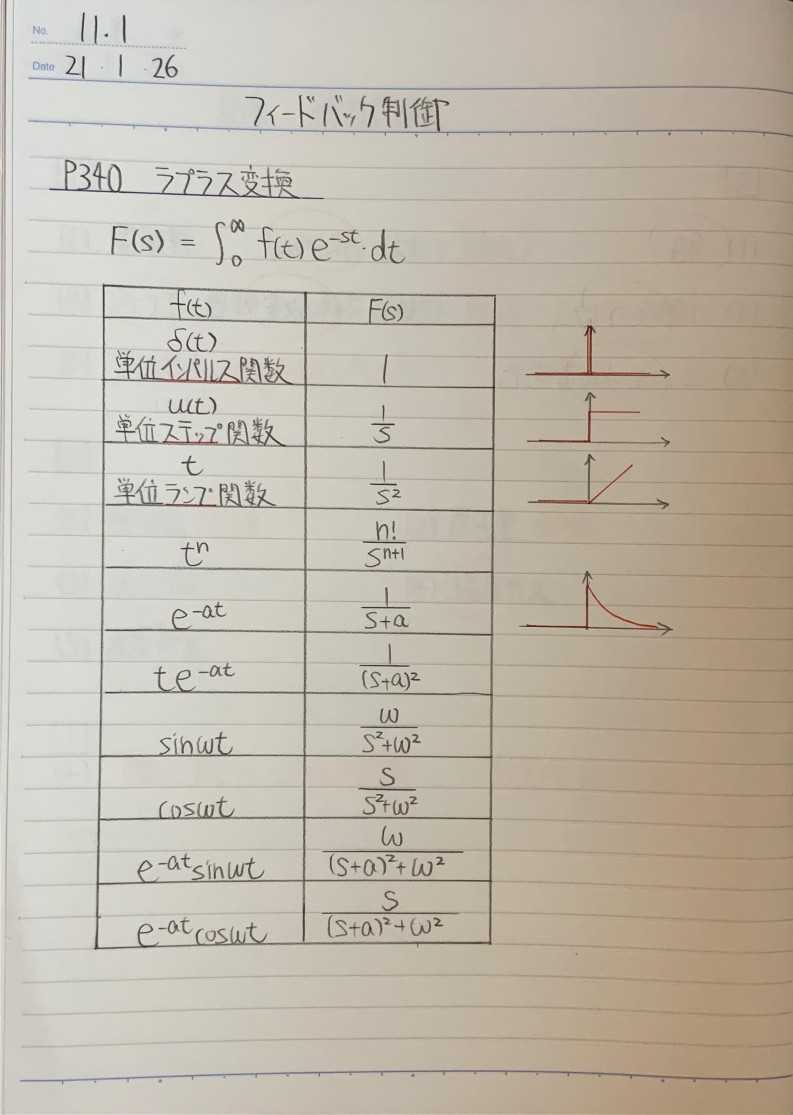 No. 11.1
Date 21 ・ 1 ・ 26
フィードバック制御
P340 ラプラス変換
F(s) = ∫₀^∞ f(t) e^{-st}・dt
f(t) F(s)
δ(t)
単位インパルス関数 1
u(t)
単位ステップ関数 1/s
t
単位ランプ関数 1/s²
tⁿ n!/s^{n+1}
e^{-at} 1/(s+a)
te^{-at} 1/(s+a)²
sinωt ω/(s²+ω²)
cosωt s/(s²+ω²)
e^{-at}sinωt ω/((s+a)²+ω²)
e^{-at}cosωt s/((s+a)²+ω²)